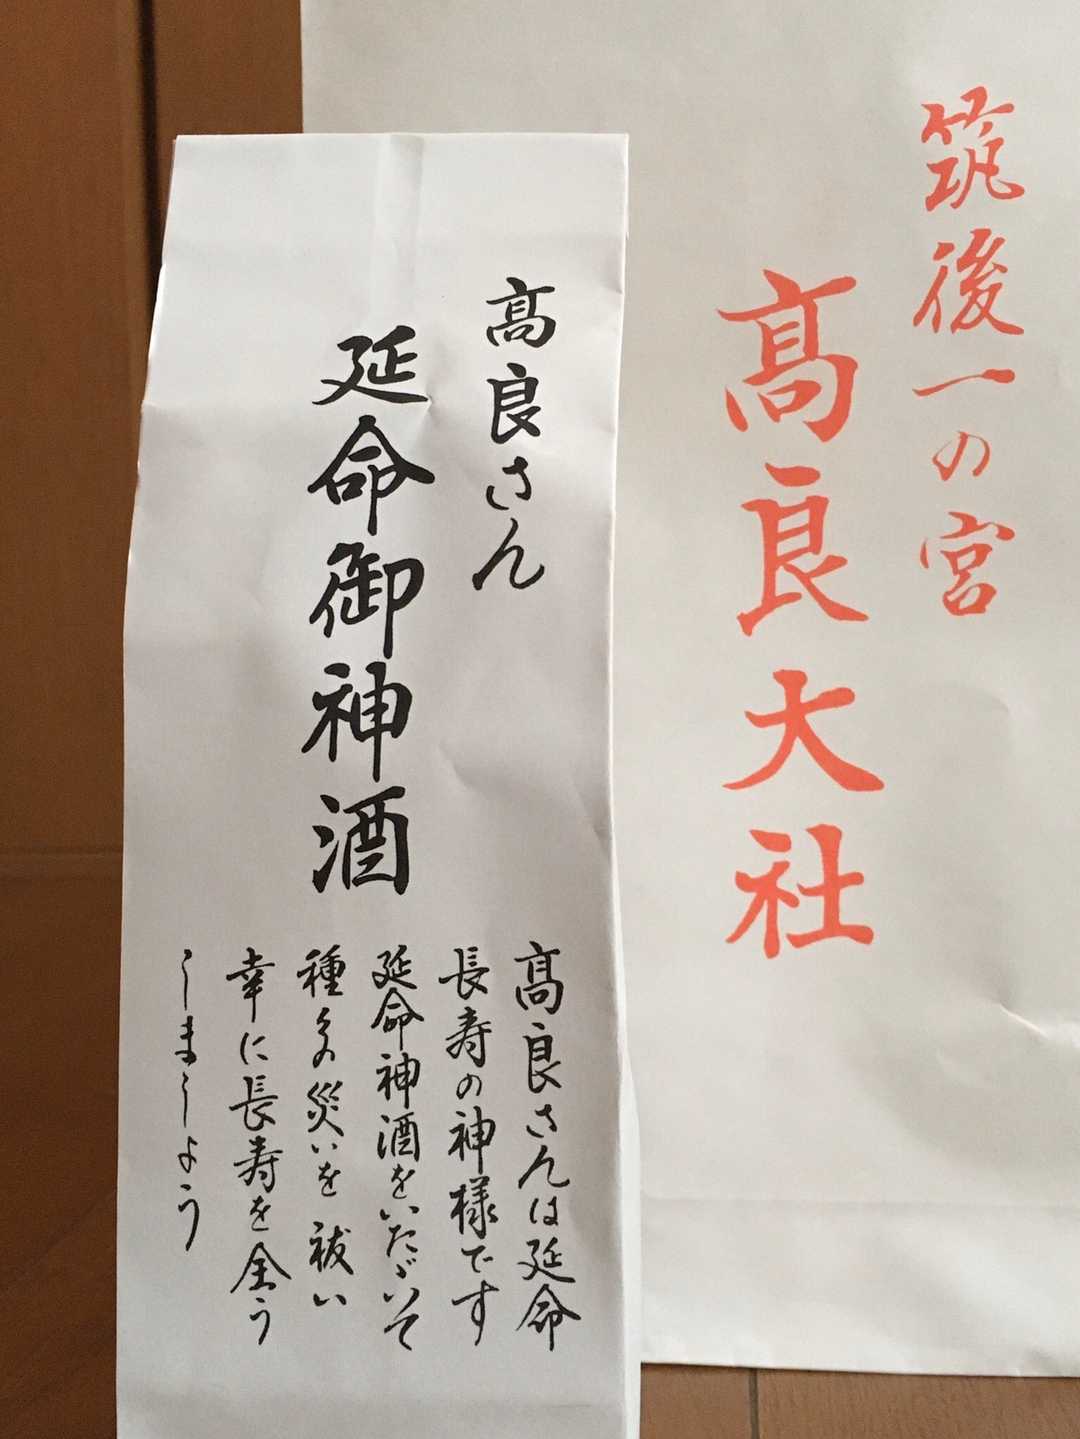 筑後一の宮
髙良大社
髙良さん
延命御神酒
髙良さんは延命
長寿の神様です
延命神酒をいたゞいて
種々の災いを祓い
幸に長寿を全う
しましょう